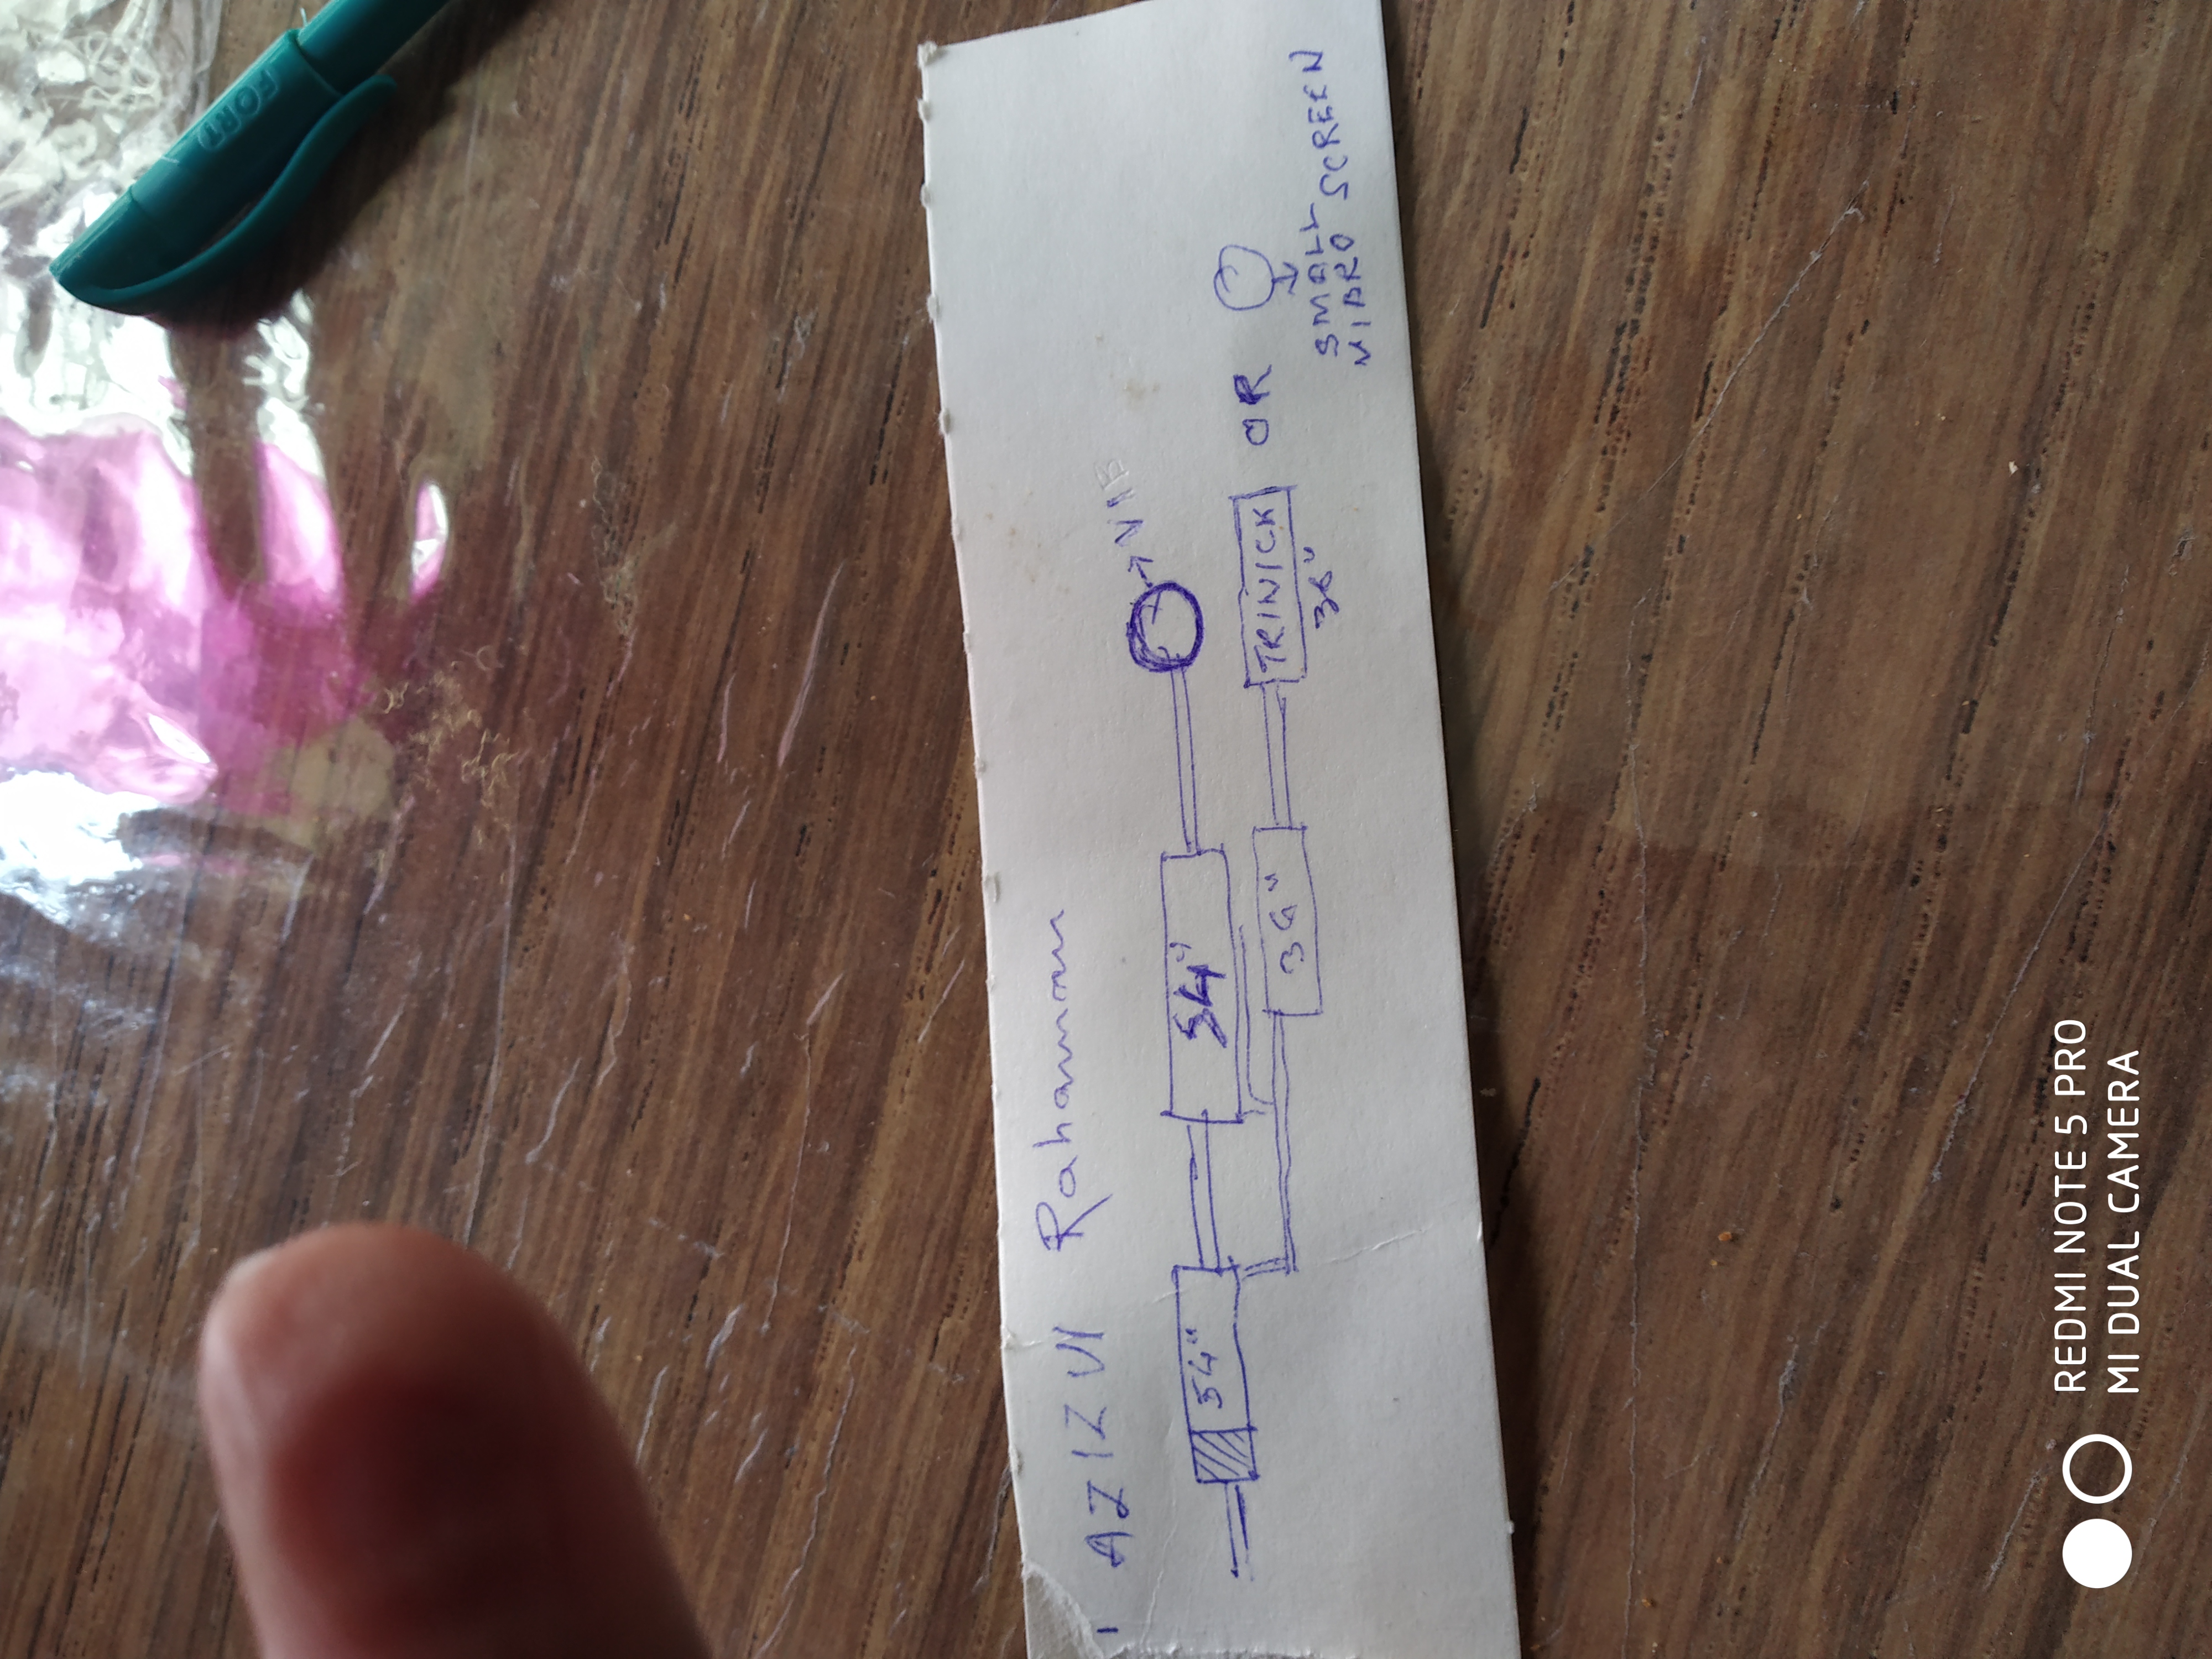 AZIZUl Rahaman
54" 54" → VIB
36" TRINICK OR
36"
SMALL
VIBRO SCREEN
REDMI NOTE 5 PRO
MI DUAL CAMERA